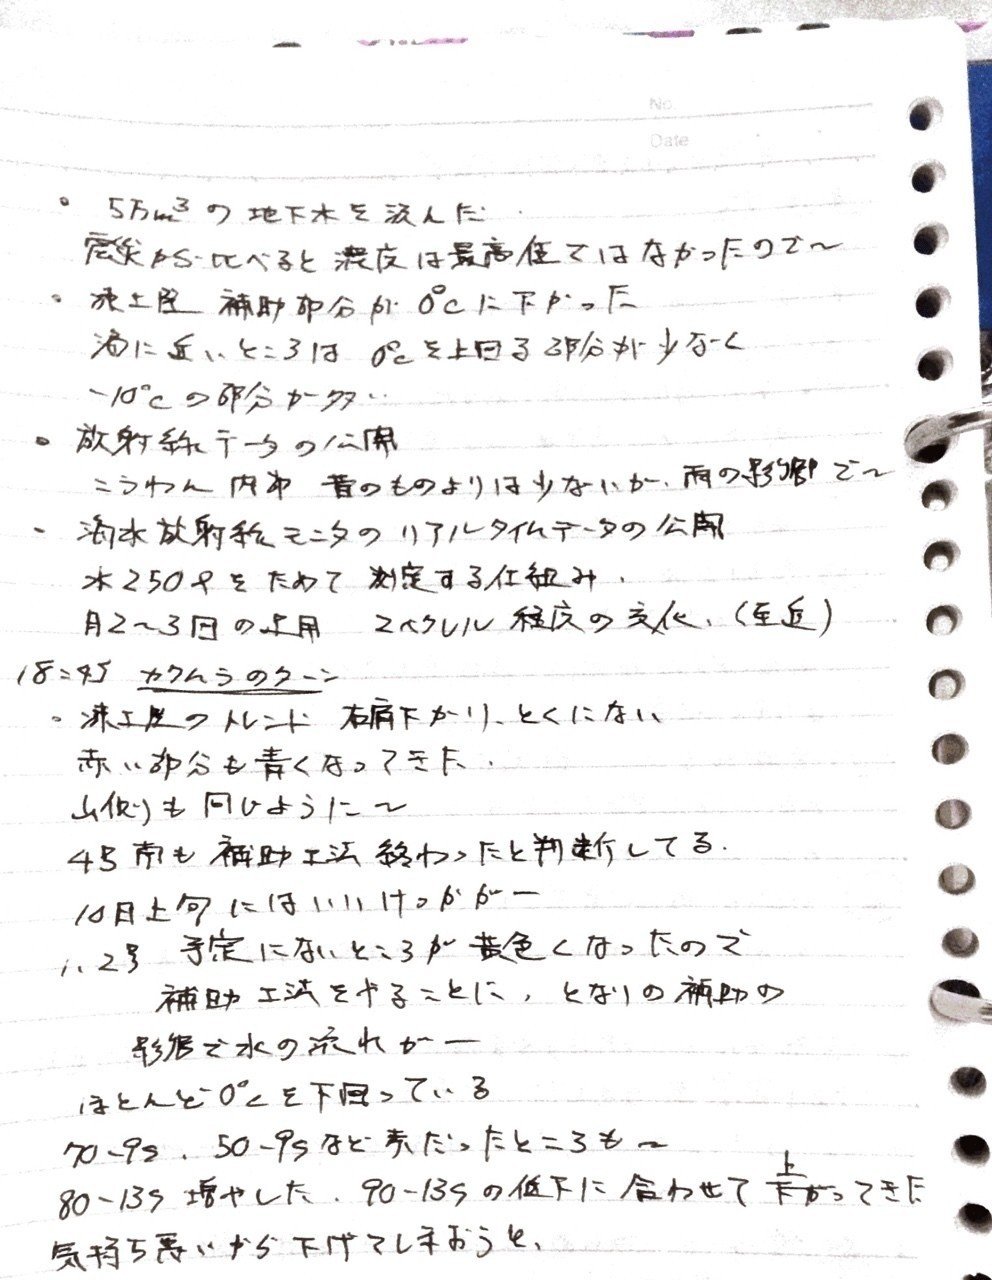 No.
Date
・ 5万m³の地下水を汲んだ
震災から比べると濃度は最高値ではなかったので〜
・凍土壁 補助部分が0℃に下がった
海に近いところは 0℃を上回る部分が少なく
-10℃の部分が多い
・放射線データの公開
こうわん内外 昔のものよりは少ないが、雨の影響で〜
・海水放射線モニタのリアルタイムデータの公開
水250ℓをためて測定する仕組み.
月2〜3回の 2ベクレル程度の変化、(至近)
18:45 カクムラのターン
・凍土壁のトレンド 右肩下がり、とくにない
赤い部分も青くなってきた.
山側も同じように〜
4号南も補助工法終わったと判断してる.
10月上旬にはいい
1、2号 予定にないところが黄色くなったので
補助工法をやることに、となりの補助の
影響で水の流れがー
ほとんど0℃を下回っている
70-9S、50-9Sなど赤だったところも〜
80-13S 増やした、90-13Sの低下に合わせて下上がってきた
気持ち悪いから下げてしまおうと、